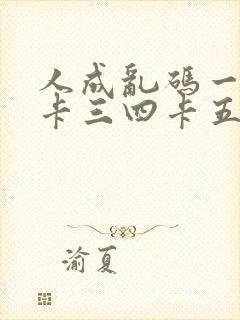 人成亂碼一
卡三四卡五
渝夏